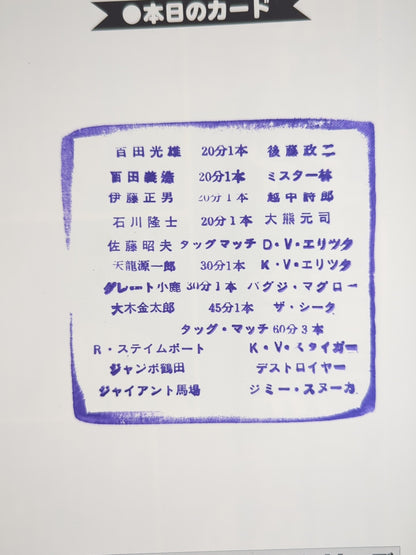 ●本日のカード
百田光雄 20分1本 後藤政二
百田義浩 20分1本 ミスター林
伊藤正男 20分1本 越中詩郎
石川隆士 20分1本 大熊元司
佐藤昭夫 タッグマッチ D・V・エリツク
天龍源一郎 30分1本 K・V・エリツク
グレート小鹿 30分1本 バグジ・マグロー
大木金太郎 45分1本 ザ・シーク
タッグ・マッチ 60分3本
R・ステイムボート K・V・くタイガー
ジャンボ鶴田 デストロイヤー
ジャイアント馬場 ジミー・スヌーカ